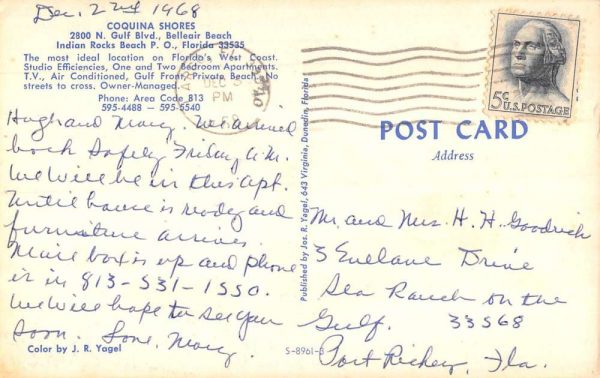 Dec. 2nd 1968
COQUINA SHORES
2800 N. Gulf Blvd., Belleair Beach
Indian Rocks Beach P. O., Florida 33535
The most ideal location on Florida's West Coast.
Studio Efficiencies, One and Two Bedroom Apartments.
T.V., Air Conditioned, Gulf Front, Private Beach, No
streets to cross. Owner-Managed
Phone: Area Code 813
595-4488 — 595-5540
Hugh and Mary. We arrived
back safely Friday A.M.
We will be in this apt.
Until house is ready and
furniture arrives.
Mail box is up and phone
is in 813-531-1550.
We will hope to see you
soon. Love, Mary.
Color by J. R. Yagel
DEC
PM
Published by Jos. R. Yagel, 643 Virginia, Dunedin, Florida
S-8961-3
5c U.S. POSTAGE
POST CARD
Address
Mr. and Mrs. H. H. Goodrich
3 Drive
Sea Ranch on the
Gulf. 33568
Port Richey, Fla.